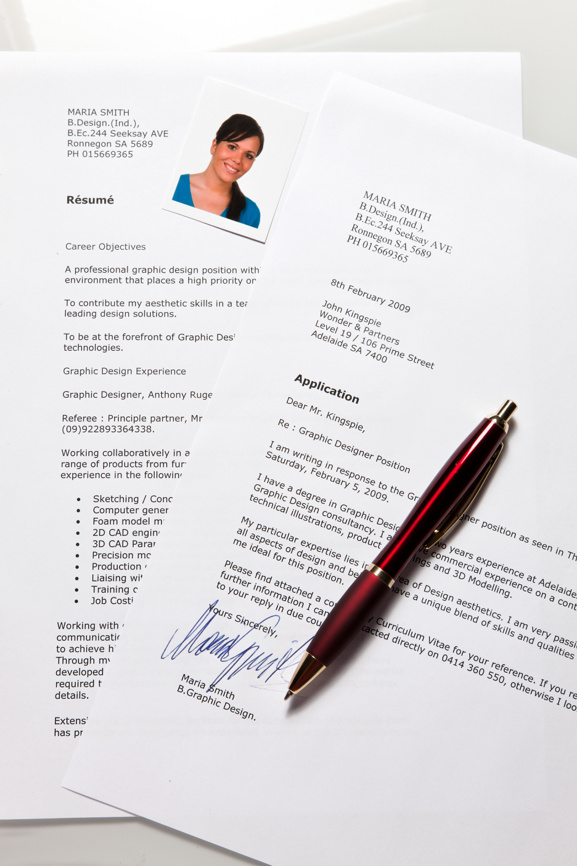 MARIA SMITH
B.Design.(Ind.),
B.Ec.244 Seeksay AVE
Ronnegon SA 5689
PH 015669365
Résumé
Career Objectives
A professional graphic design position with
environment that places a high priority or
To contribute my aesthetic skills in a
leading design solutions.
To be at the forefront of Graphic
technologies.
Graphic Design Experience
Graphic Designer, Anthony
Referee : Principle partner, Mr
(09)922893364338.
Working collaboratively in a
range of products from
experience in the following
• Sketching /
• Computer
• Foam model
• 2D CAD
• 3D CAD
• Precision
• Production
• Liaising
• Training
• Job
Working with
to achieve
Through
developed
required
details.
has
MARIA SMITH
B.Design.(Ind.),
B.Ec.244 Seeksay AVE
Ronnegon SA 5689
PH 015669365
8th February 2009
John Kingspie
Wonder & Partners
Level 19 / 106 Prime Street
Adelaide SA 7400
Application
Dear Mr. Kingspie,
Re : Graphic Designer Position
I am writing in response to the position as seen in
Saturday, February 5, 2009.
I have a degree in Graphic years experience at
Graphic Design consultancy. I commercial experience on a
technical illustrations, product and 3D Modelling.
My particular expertise lies of Design aesthetics. I am very
all aspects of design and have a unique blend of skills and qualities
me ideal for this position.
Please find attached a Curriculum Vitae for your reference. If you
further information I directly on 0414 360 550, otherwise I
to your reply in due
Yours Sincerely,
Maria Smith
B.Graphic Design.